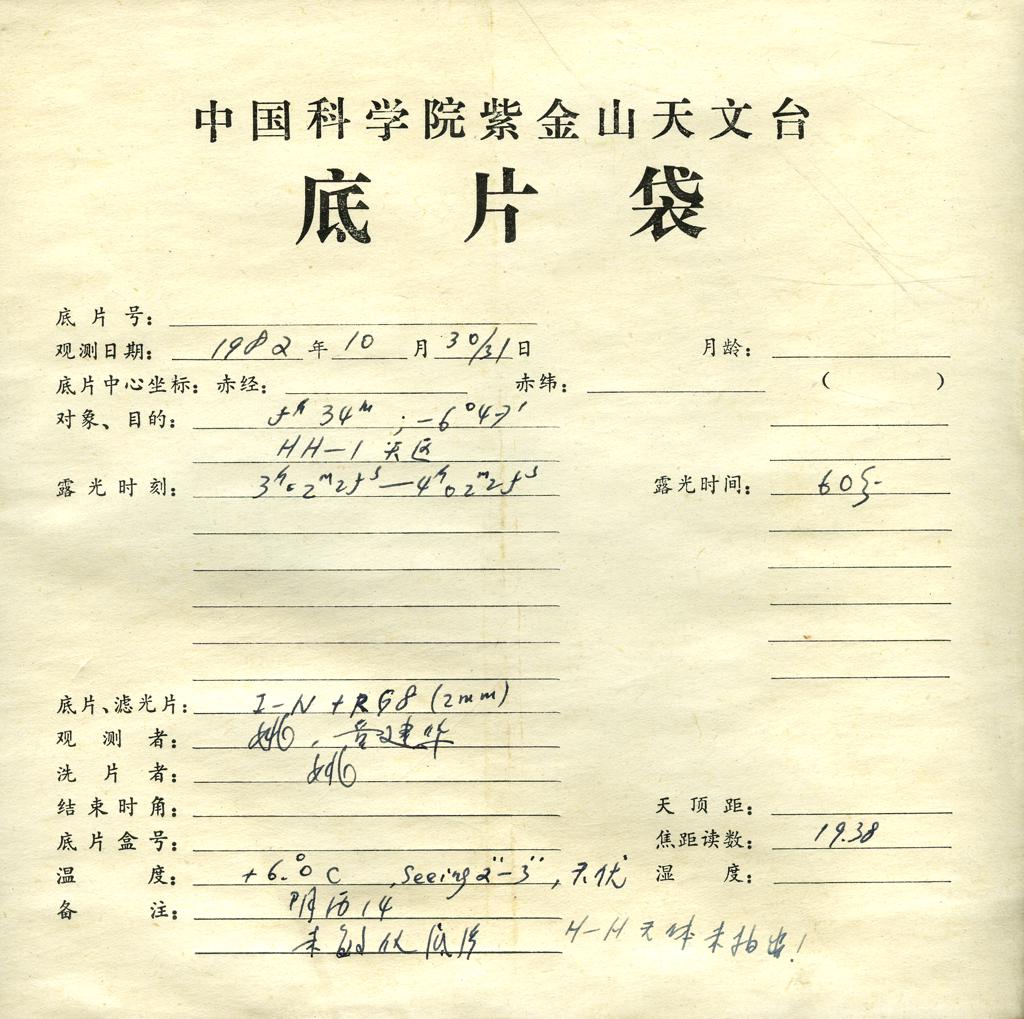 中国科学院紫金山天文台
底片袋
底片号：
观测日期： 1982 年 10 月 30/31 日 月龄：
底片中心坐标：赤经： 赤纬： （ ）
对象、目的： 5ʰ 34ᵐ ; -6°47′
HH-1 天区
露光时刻： 3ʰ02ᵐ25ˢ—4ʰ02ᵐ25ˢ 露光时间： 60分
底片、滤光片： I-N + RG8 (2mm)
观测者： 姚, 建华
洗片者： 姚
结束时角： 天顶距：
底片盒号： 焦距读数： 19.38
温度： +6.°0 C , Seeing 2″-3″, 湿度：
备注： 14
未敏化底片 H-H天体未拍出!